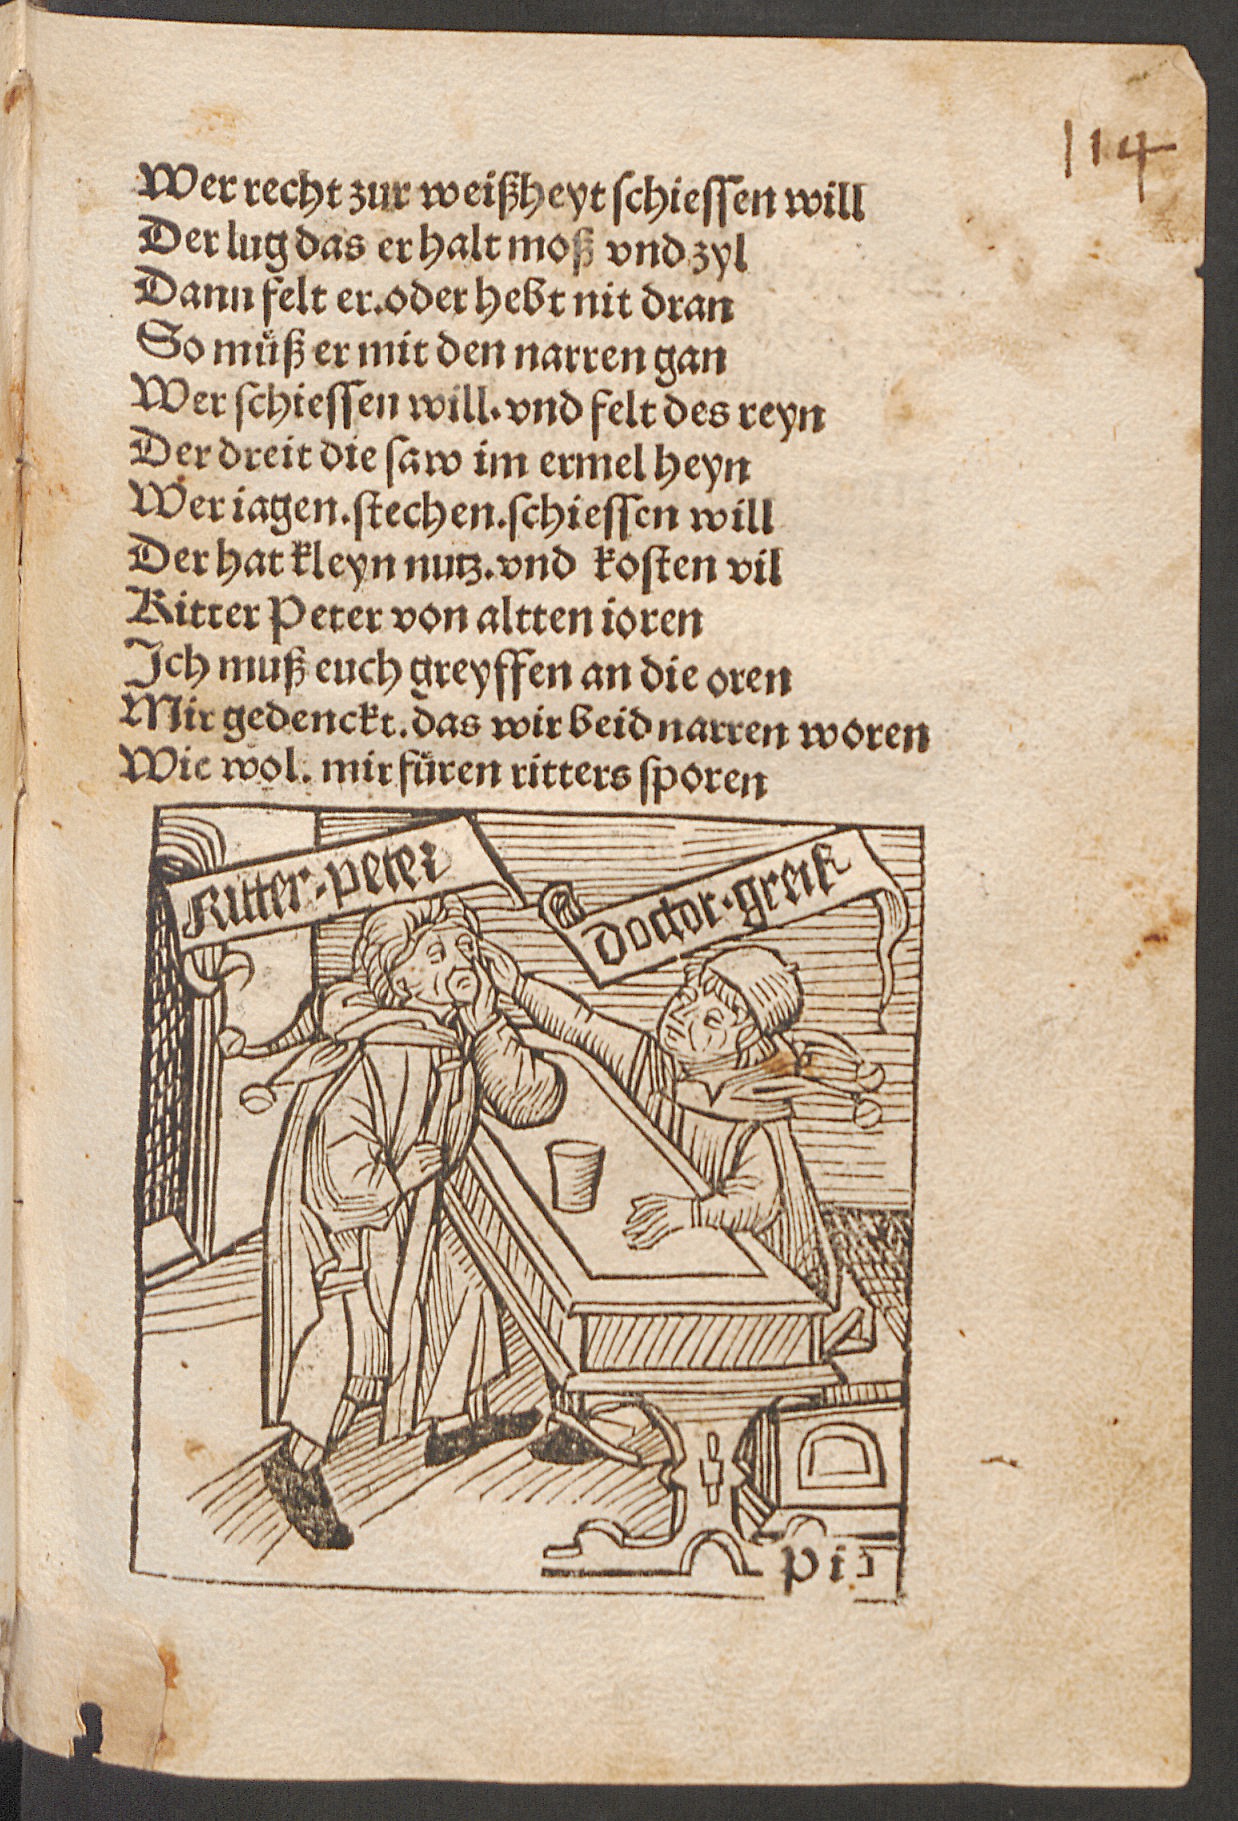 114
Wer recht zur weißheyt schiessen will
Der lug das er halt moß vnd zyl
Dann felt er.oder hebt nit dran
So muͤß er mit den narren gan
Wer schiessen will.vnd felt des reyn
Der dreit die saw im ermel heyn
Wer iagen.stechen.schiessen will
Der hat kleyn nutz.vnd kosten vil
Ritter Peter von altten ioren
Ich muß euch greyffen an die oren
Mir gedenckt.das wir beid narren woren
Wie wol. mir fuͤren ritters sporen
Ritter-peter
Doctor.greif
p iij